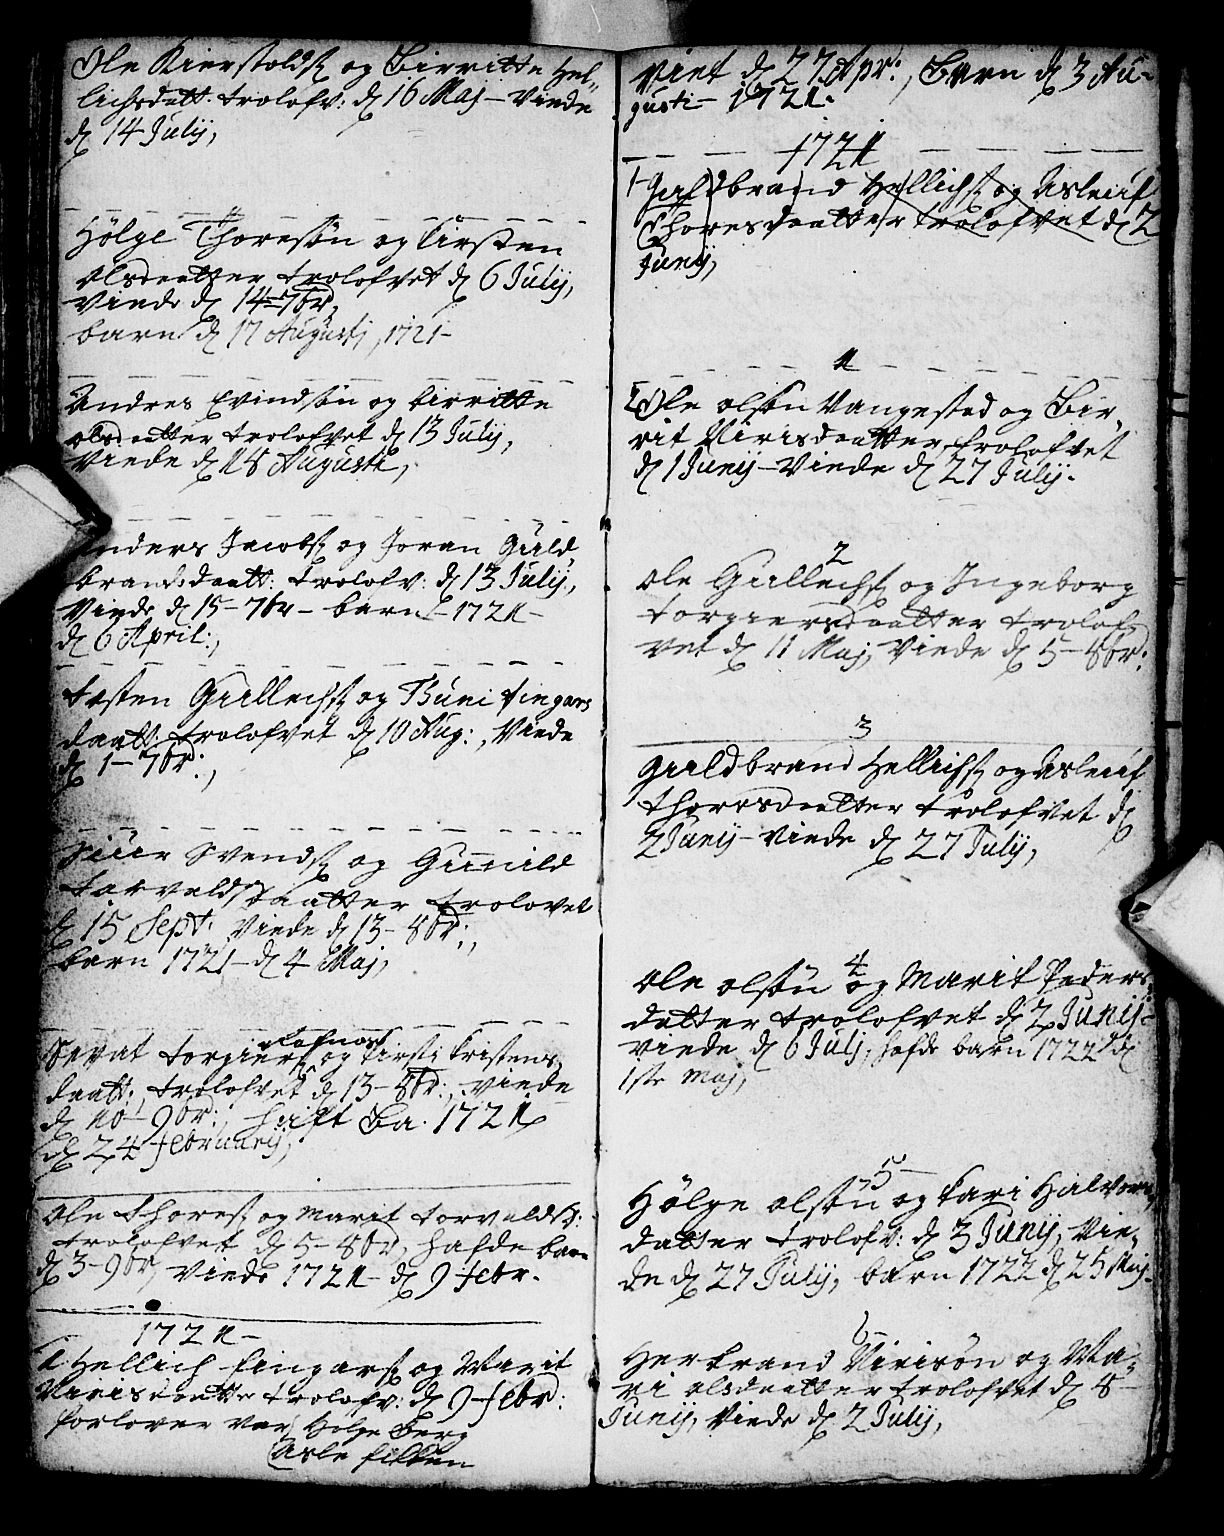 Ole Kierstolds: og Birritte Hel-
lichsdatt. trolofv: d: 16 Maj – Viede
d: 14 Julij,
Hølge Thoresøn og Kirsten
Olsdaatter trolofvet d: 6 Julij,
Viede d: 14–7br,
barn d: 17 Augusti, 1721–
Andres Evindsøn og birritte
olsdaatter trolofvet d: 13 Julij,
Viede d: 18 Augusti,
Anders Jacobs: og Joran Guld
brandsdaatt: trolofv: d: 13 Julij,
Viede d: 15–7br – barn – 1721 –
d: 6 April:,
Tosten Gullechs: og Thuni fingars
daatt: trolofvet d: 10 Aug:, Viede
d: 1–7br:,
Siuer Svends: og Gunnild
Torvelds daatter trolovet
d: 15 Sept: Viede d: 13–8br:,
barn 1721 – d: 4 Maj,
Torgiers: og Kirsti Kristens
daatt:, trolofvet d: 13–8br:, Viede
d: 10–9br:, haft Ba. 1721
d: 24 februarij,
Ole Thores: og Marit Torvelds:
trolofvet d: 5–8br, hafde barn
d: 3–9br, Viede 1721 – d: 9 febr.
1721 –
1 Hellich fingars: og Marit
Narisdaatter trolofv: d: 9 febr:
forlover var Holge Berg
Asle
viet d: 27 Apr:, Barn d: 3 Au-
gusti – 1721.
1721
1 Guldbrand Hellichs: og Asleuf
Thoresdaatter trolofvet d: 2
Junij,
1
Ole olsøn Vangestad og Bir,
rit Nirisdaatter, trolofvet
d: 1 Junij – Viede d: 27 Julij.
2
Ole Gullechs: og Ingeborg
Torgiersdaatter trolof
vet d: 11 Maj, Viede d: 5–8br:
3
Guldbrand Hellichs: og Asleuf
Thoresdaatter trolofvet d:
2 Junij – Viede d: 27 Julij,
4
Ole olsøn og Marit Peders
datter trolofvet d: 2 Junij –
Viede d: 6 Julj, hafde barn 1722 d:
1ste Maj,
5
Hølge olsøn og Kari Halvors,
datter trolofv: d: 3 Junij, Vie,
de d: 27 Julij, barn 1722 d: 25 Maj
6
Herbrand Nirisøn og Ma,
ri olsdaatter trolofvet d: 8 –
Junij, Viede d: 2 Julij,